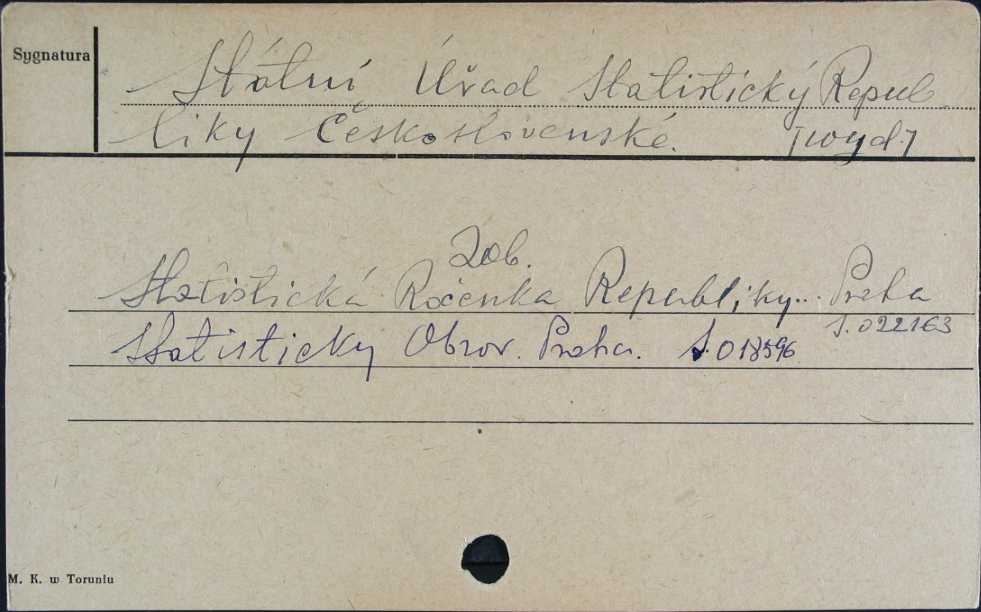 Sygnatura
Státní Úřad Statistický Repub
liky Československé. [wyd.]
Zob.
Statistická Ročenka Republiky... Praha
S. 022163
Statisticky Obzor. Praha. S. 018596
M. K. w Toruniu